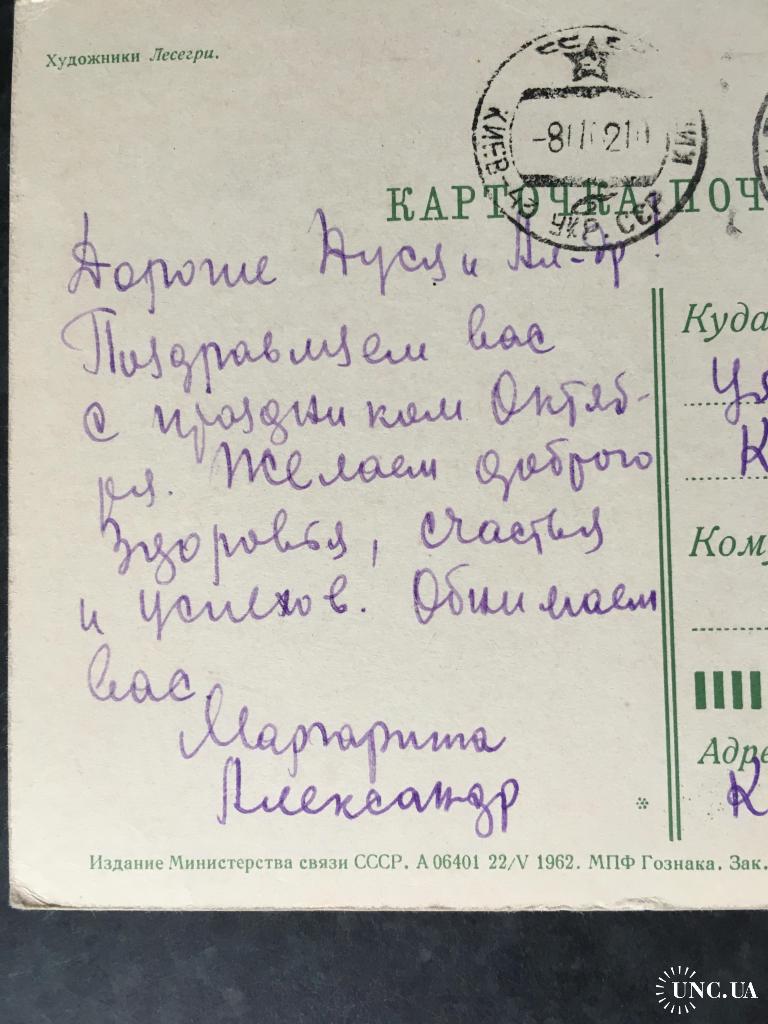 Художники Лесегри.
КИЕВ
УКР. ССР
КАРТОЧКА ПОЧ
Дорогие Нуся и Ал-др!
Поздравляем вас
с праздником Октяб-
ря. Желаем доброго
здоровья, счастья
и успехов. Обнимаем
вас.
Маргарита
Александр
Куда
Ком
Адре
Издание Министерства связи СССР. А 06401 22/V 1962. МПФ Гознака. Зак.
UNC.UA